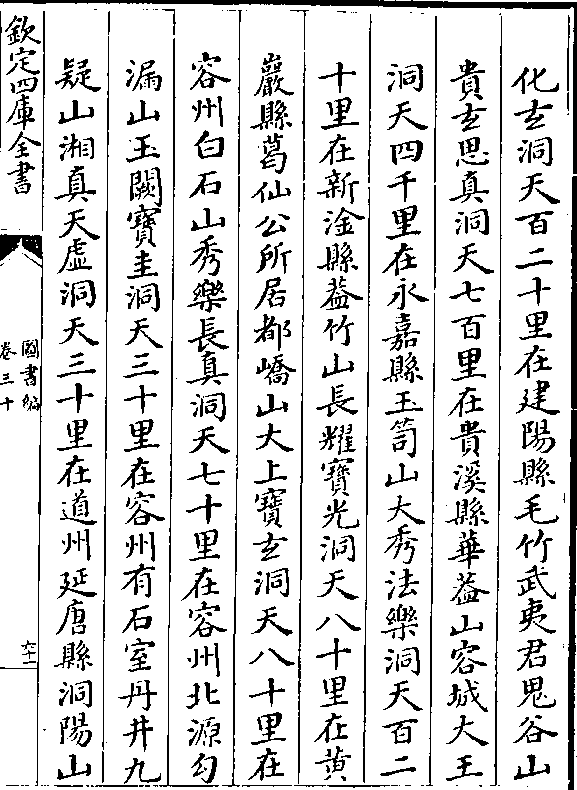 化玄洞天百二十里在建陽縣毛竹武夷君鬼谷山
貴玄思真洞天七百里在貴溪縣華葢山容城大王
洞天四千里在永嘉縣玉笥山大秀法樂洞天百二
十里在新淦縣葢竹山長耀寶光洞天八十里在黄
巖縣葛仙公所居都嶠山大上寶玄洞天八十里在
容州白石山秀樂長真洞天七十里在容州北源勾
漏山玉闕寶圭洞天三十里在容州有石室丹井九
疑山湘真天虛洞天三十里在道州延唐縣洞陽山
欽定四庫全書
圖書編
卷三十
六十一